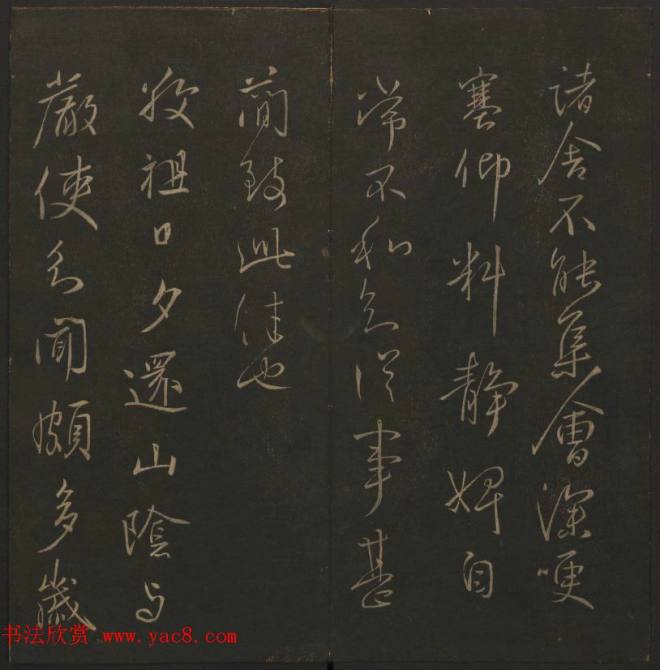 諸舍不能集會深哽
塞仰料靜婢自
常不和知從事甚
簡致此佳也
敬祖日夕還山陰与
嚴使君聞頗多歲
书法欣赏 www.yac8.com